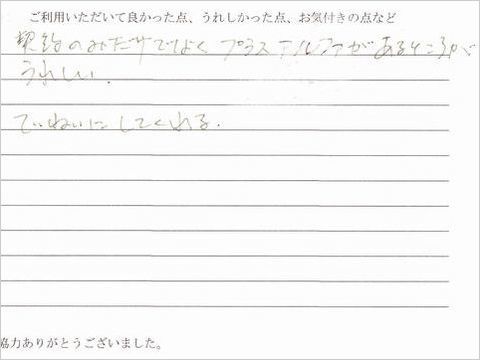 ご利用いただいて良かった点、うれしかった点、お気付きの点など
契約のみだけでなく プラスアルファがあるところが
うれしい.
ていねいにしてくれる.
協力ありがとうございました。